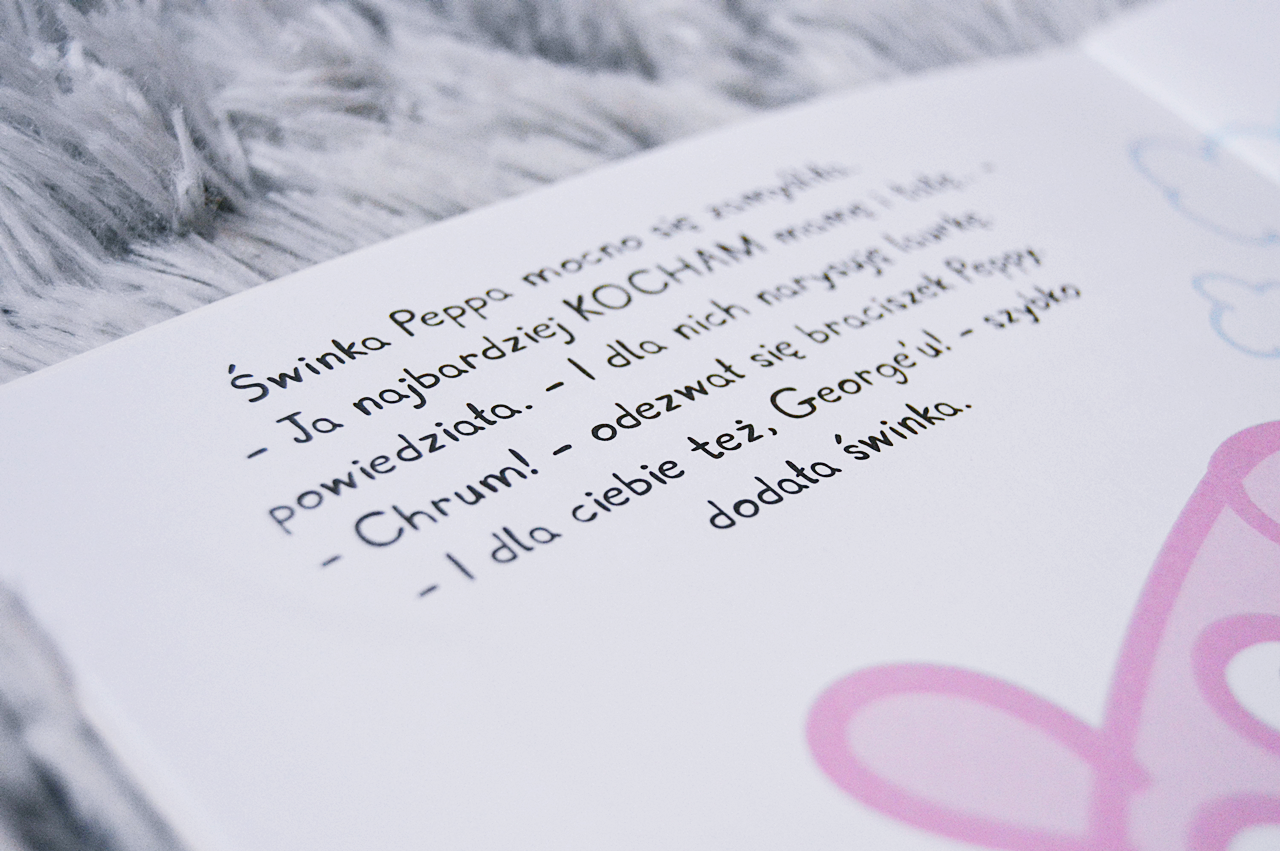 Świnka Peppa mocno się zamyśliła.
- Ja najbardziej KOCHAM mamę i tatę. -
powiedziała. - I dla nich narysuję laurkę.
- Chrum! - odezwał się braciszek Peppy.
- I dla ciebie też, George'u! - szybko
dodała świnka.